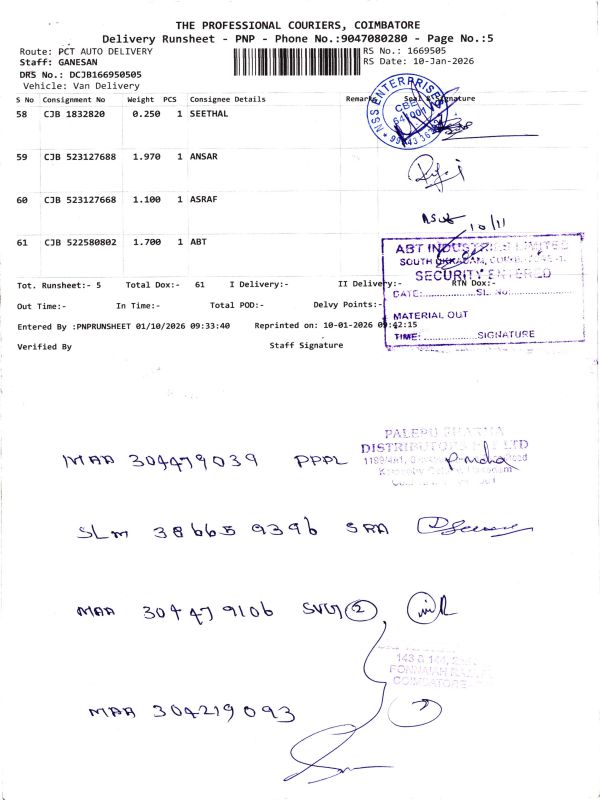 THE PROFESSIONAL COURIERS, COIMBATORE
Delivery Runsheet - PNP - Phone No.:9047080280 - Page No.:5
Route: PCT AUTO DELIVERY RS No.: 1669505
Staff: GANESAN RS Date: 10-Jan-2026
DRS No.: DCJB166950505
Vehicle: Van Delivery
S No Consignment No Weight PCS Consignee Details Remarks Seal & Signature
NSS ENTERPRISES
CBE
641001
58 CJB 1832820 0.250 1 SEETHAL
59 CJB 523127688 1.970 1 ANSAR
60 CJB 523127668 1.100 1 ASRAF
10/11
61 CJB 522580802 1.700 1 ABT
ABT INDUSTRIES LIMITED
SOUTH UKKADAM,
SECURITY ENTERED
Tot. Runsheet:- 5 Total Dox:- 61 I Delivery:- II Delivery:- RTN Dox:-
DATE: SL. No.
Out Time:- In Time:- Total POD:- Delvy Points:-
MATERIAL OUT
Entered By :PNPRUNSHEET 01/10/2026 09:33:40 Reprinted on: 10-01-2026 09:42:15
TIME: SIGNATURE
Verified By Staff Signature
DISTRIBUTORS PVT LTD
MAA 304479039 PPPL
SLM 386659396 SRA
MAA 304479106 SVG 2
143 & 144,
COIMBATORE
MAA 304219093